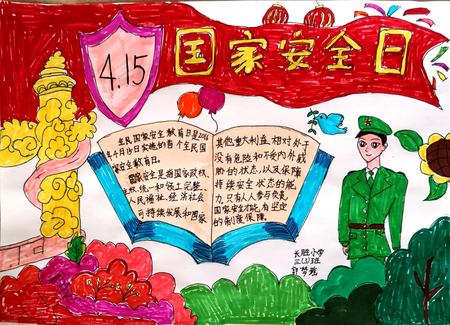 4.15
国家安全日
全民国家安全教育日是2016
年4月15日实施的首个全民国
家安全教育日。
国家安全是指国家政权
主权、统一和领土完整、
人民福祉、经济社会
可持续发展和国家
其他重大利益相对处于
没有危险和不受内外威
胁的状态,以及保障
持续安全状态的能
力,只有人人参与、负责,
国家安全才能有坚定
的制度保障。
长胜小学
三(3)班